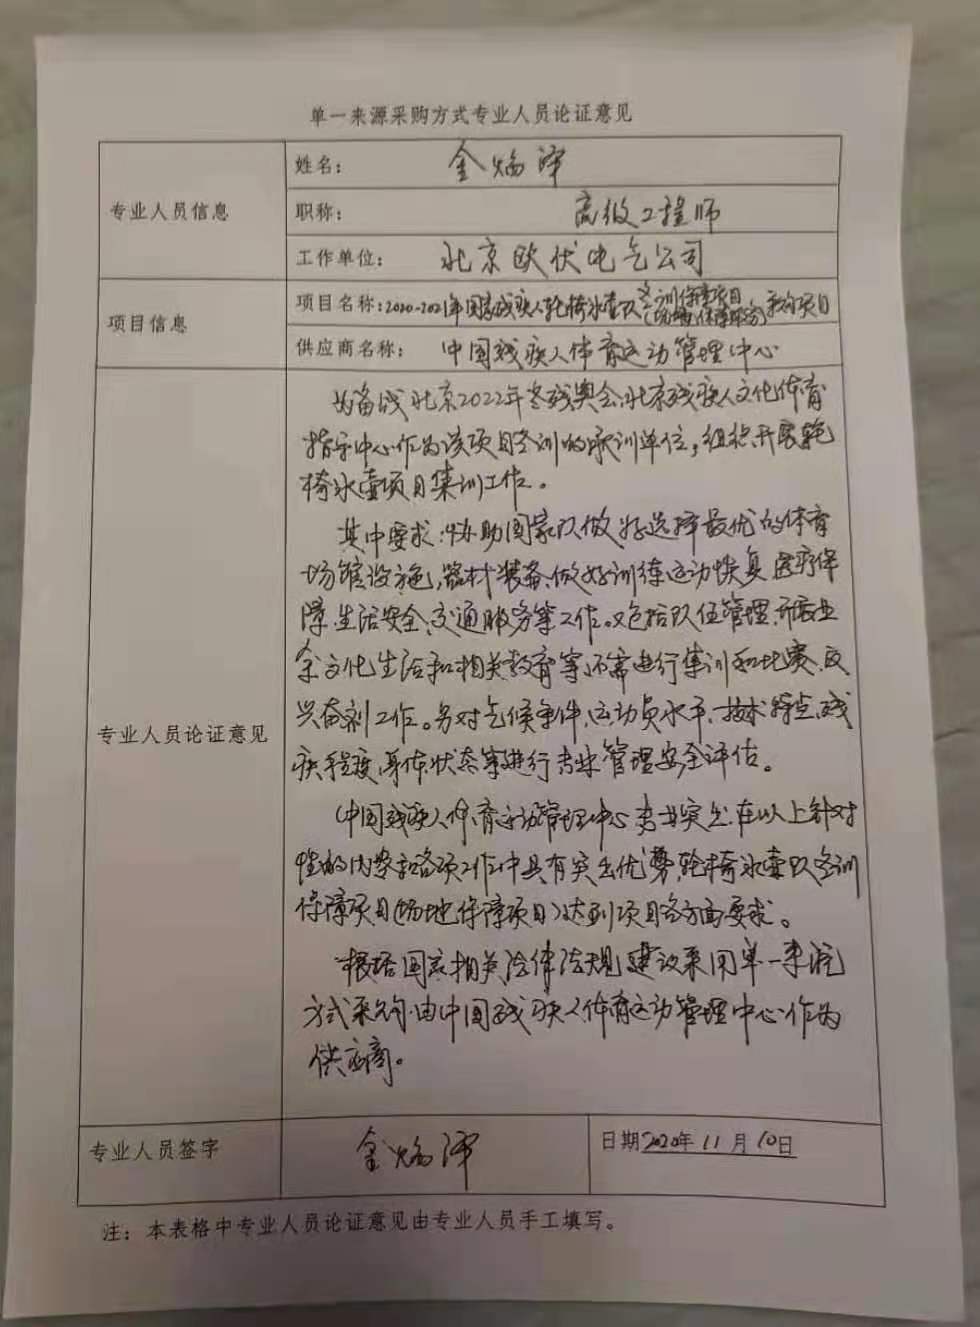 单一来源采购方式专业人员论证意见
专业人员信息
姓名：金炀泽
职称：高级工程师
工作单位：北京欧伏电气公司
项目信息
项目名称：2020-2021年国家残疾人轮椅冰壶队冬训保障项目(场地保障服务)采购项目
供应商名称：中国残疾人体育运动管理中心
专业人员论证意见
为备战北京2022年冬残奥会，北京残疾人文化体育
指导中心作为该项目冬训的承训单位，组织开展轮
椅冰壶项目集训工作。
其中要求：协助国家队做好选择最优的体育
场馆设施，器材装备、做好训练运动恢复、医疗保
障、生活安全、交通服务等工作。又包括队伍管理、开展业
余文化生活和相关教育等，还需进行集训和比赛、反
兴奋剂工作。另对气候条件、运动员水平、技术特点、残
疾程度、身体状态等进行专业管理安全评估。
中国残疾人体育运动管理中心专业突出，在以上针对
性的内容和各项工作中具有突出优势，轮椅冰壶队冬训
保障项目(场地保障项目)达到项目各方面要求。
根据国家相关法律法规，建议采用单一来源
方式采购，由中国残疾人体育运动管理中心作为
供应商。
专业人员签字
金炀泽
日期2020年11月10日
注：本表格中专业人员论证意见由专业人员手工填写。